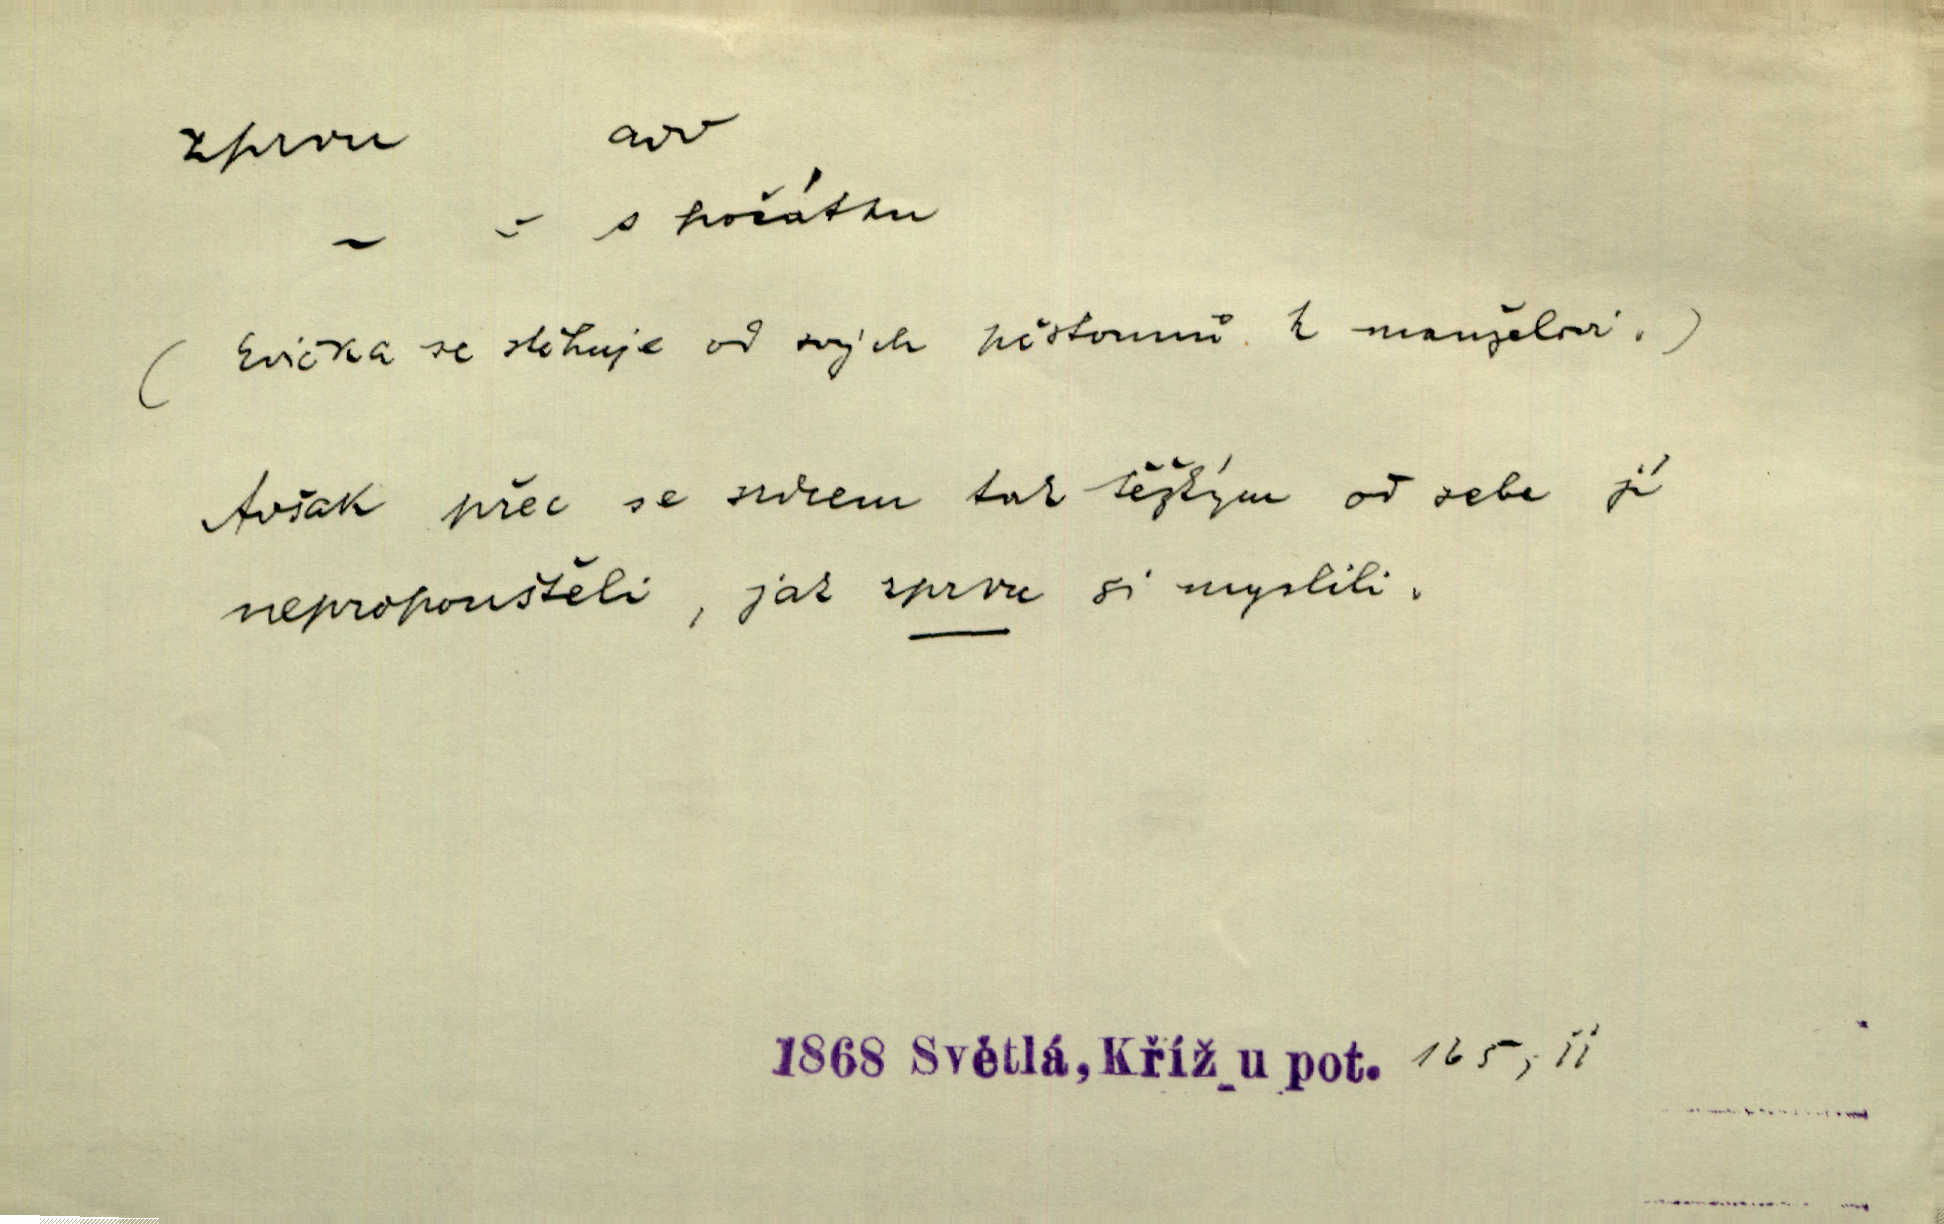 zprvu adv
~ = s počátku
( Evička se stěhuje od svých pěstounů k manželovi. )
Avšak přec se srdcem tak těžkým od sebe jí
nepropouštěli, jak zprvu si myslili.
1868 Světlá, Kříž u pot. 165, ii